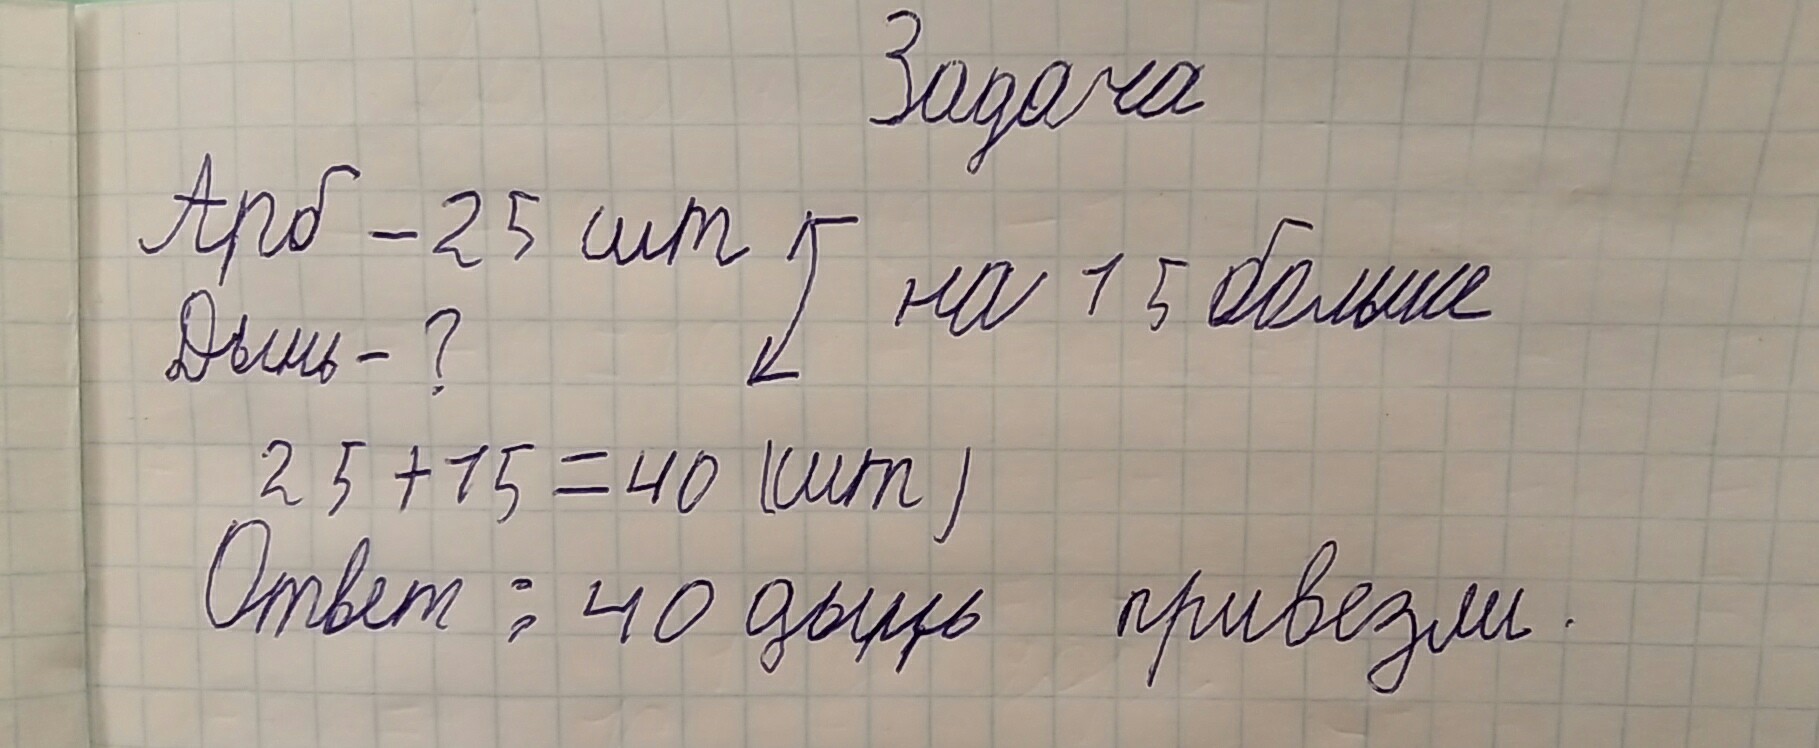 Задача
Арб - 25 шт
на 15 больше
Дынь - ?
25 + 15 = 40 (шт)
Ответ : 40 дынь привезли.